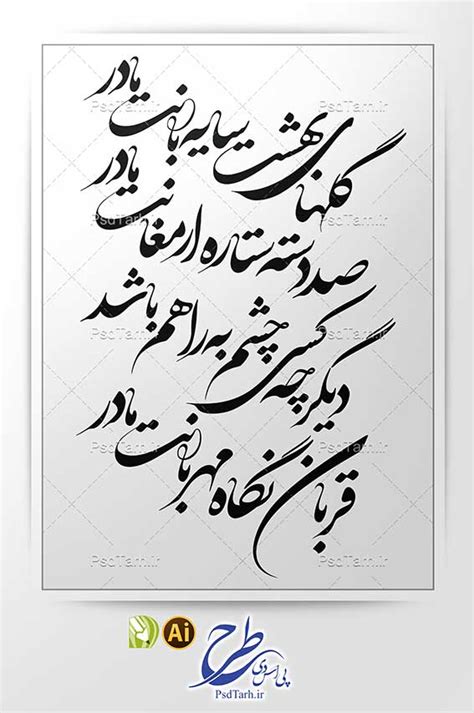 گلهای بهشت سایه بانت مادر
صد دسته ستاره ارمغانت مادر
دیگر چه کسی چشم به راهم باشد
قربان نگاه مهربانت مادر
PsdTarh.ir
PsdTarh.ir
PsdTarh.ir
PsdTarh.ir
PsdTarh.ir
PsdTarh.ir
PsdTarh.ir
PsdTarh.ir
PsdTarh.ir
PsdTarh.ir
Ai
پی اس دی طرح
PsdTarh.ir